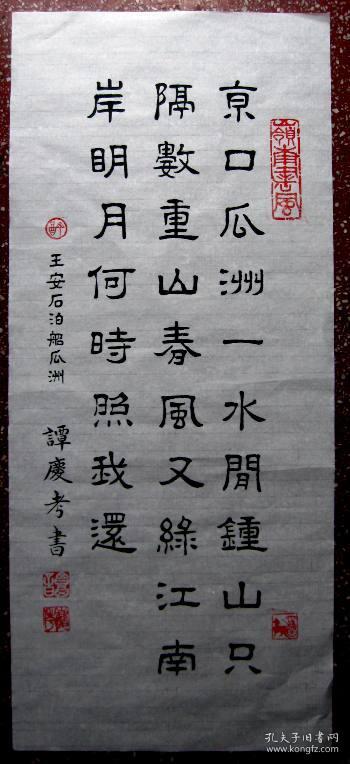 京口瓜洲一水間鍾山只
隔數重山春風又綠江南
岸明月何時照我還
王安石泊船瓜洲
譚慶考書
嶺南書風
孔夫子旧书网
www.kongfz.com